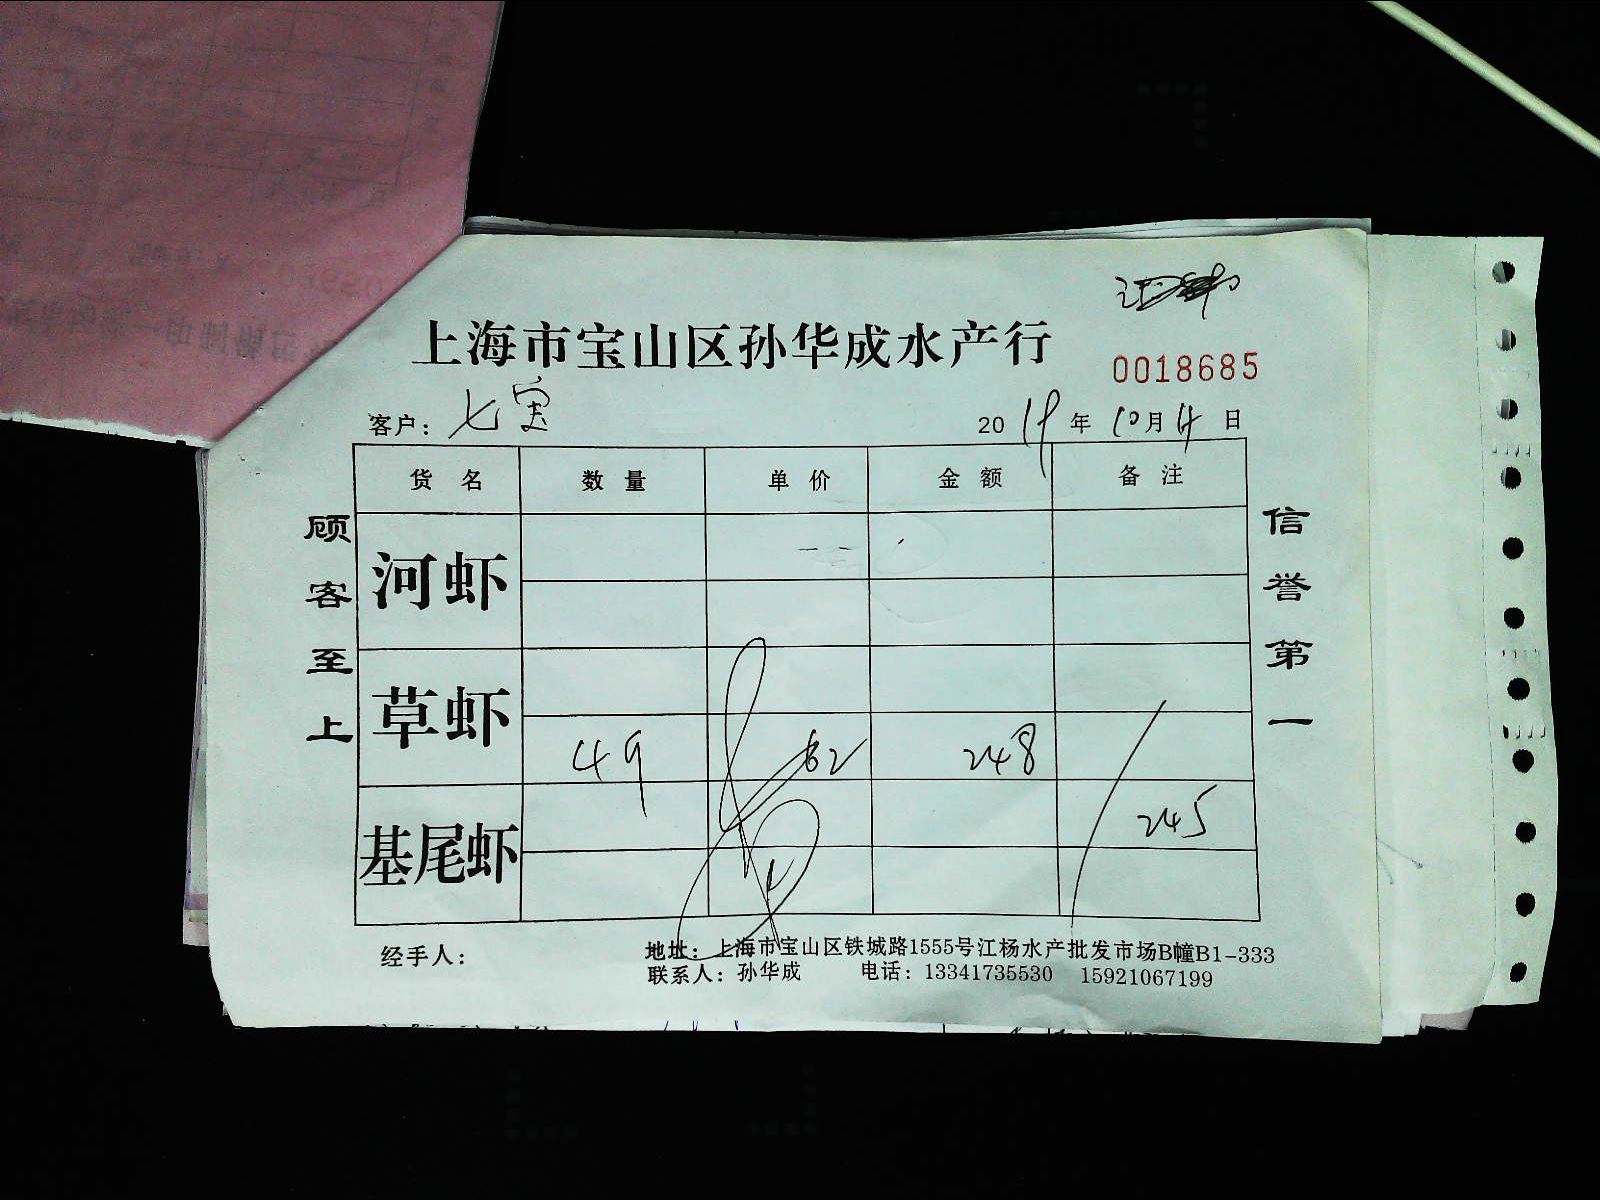 上海市宝山区孙华成水产行
0018685
客户：七宝
2019年10月4日
货名 数量 单价 金额 备注
河虾
草虾
49 62 248
基尾虾
245
顾客至上
信誉第一
经手人：
地址：上海市宝山区铁城路1555号江杨水产批发市场B幢B1-333
联系人：孙华成 电话：13341735530 15921067199